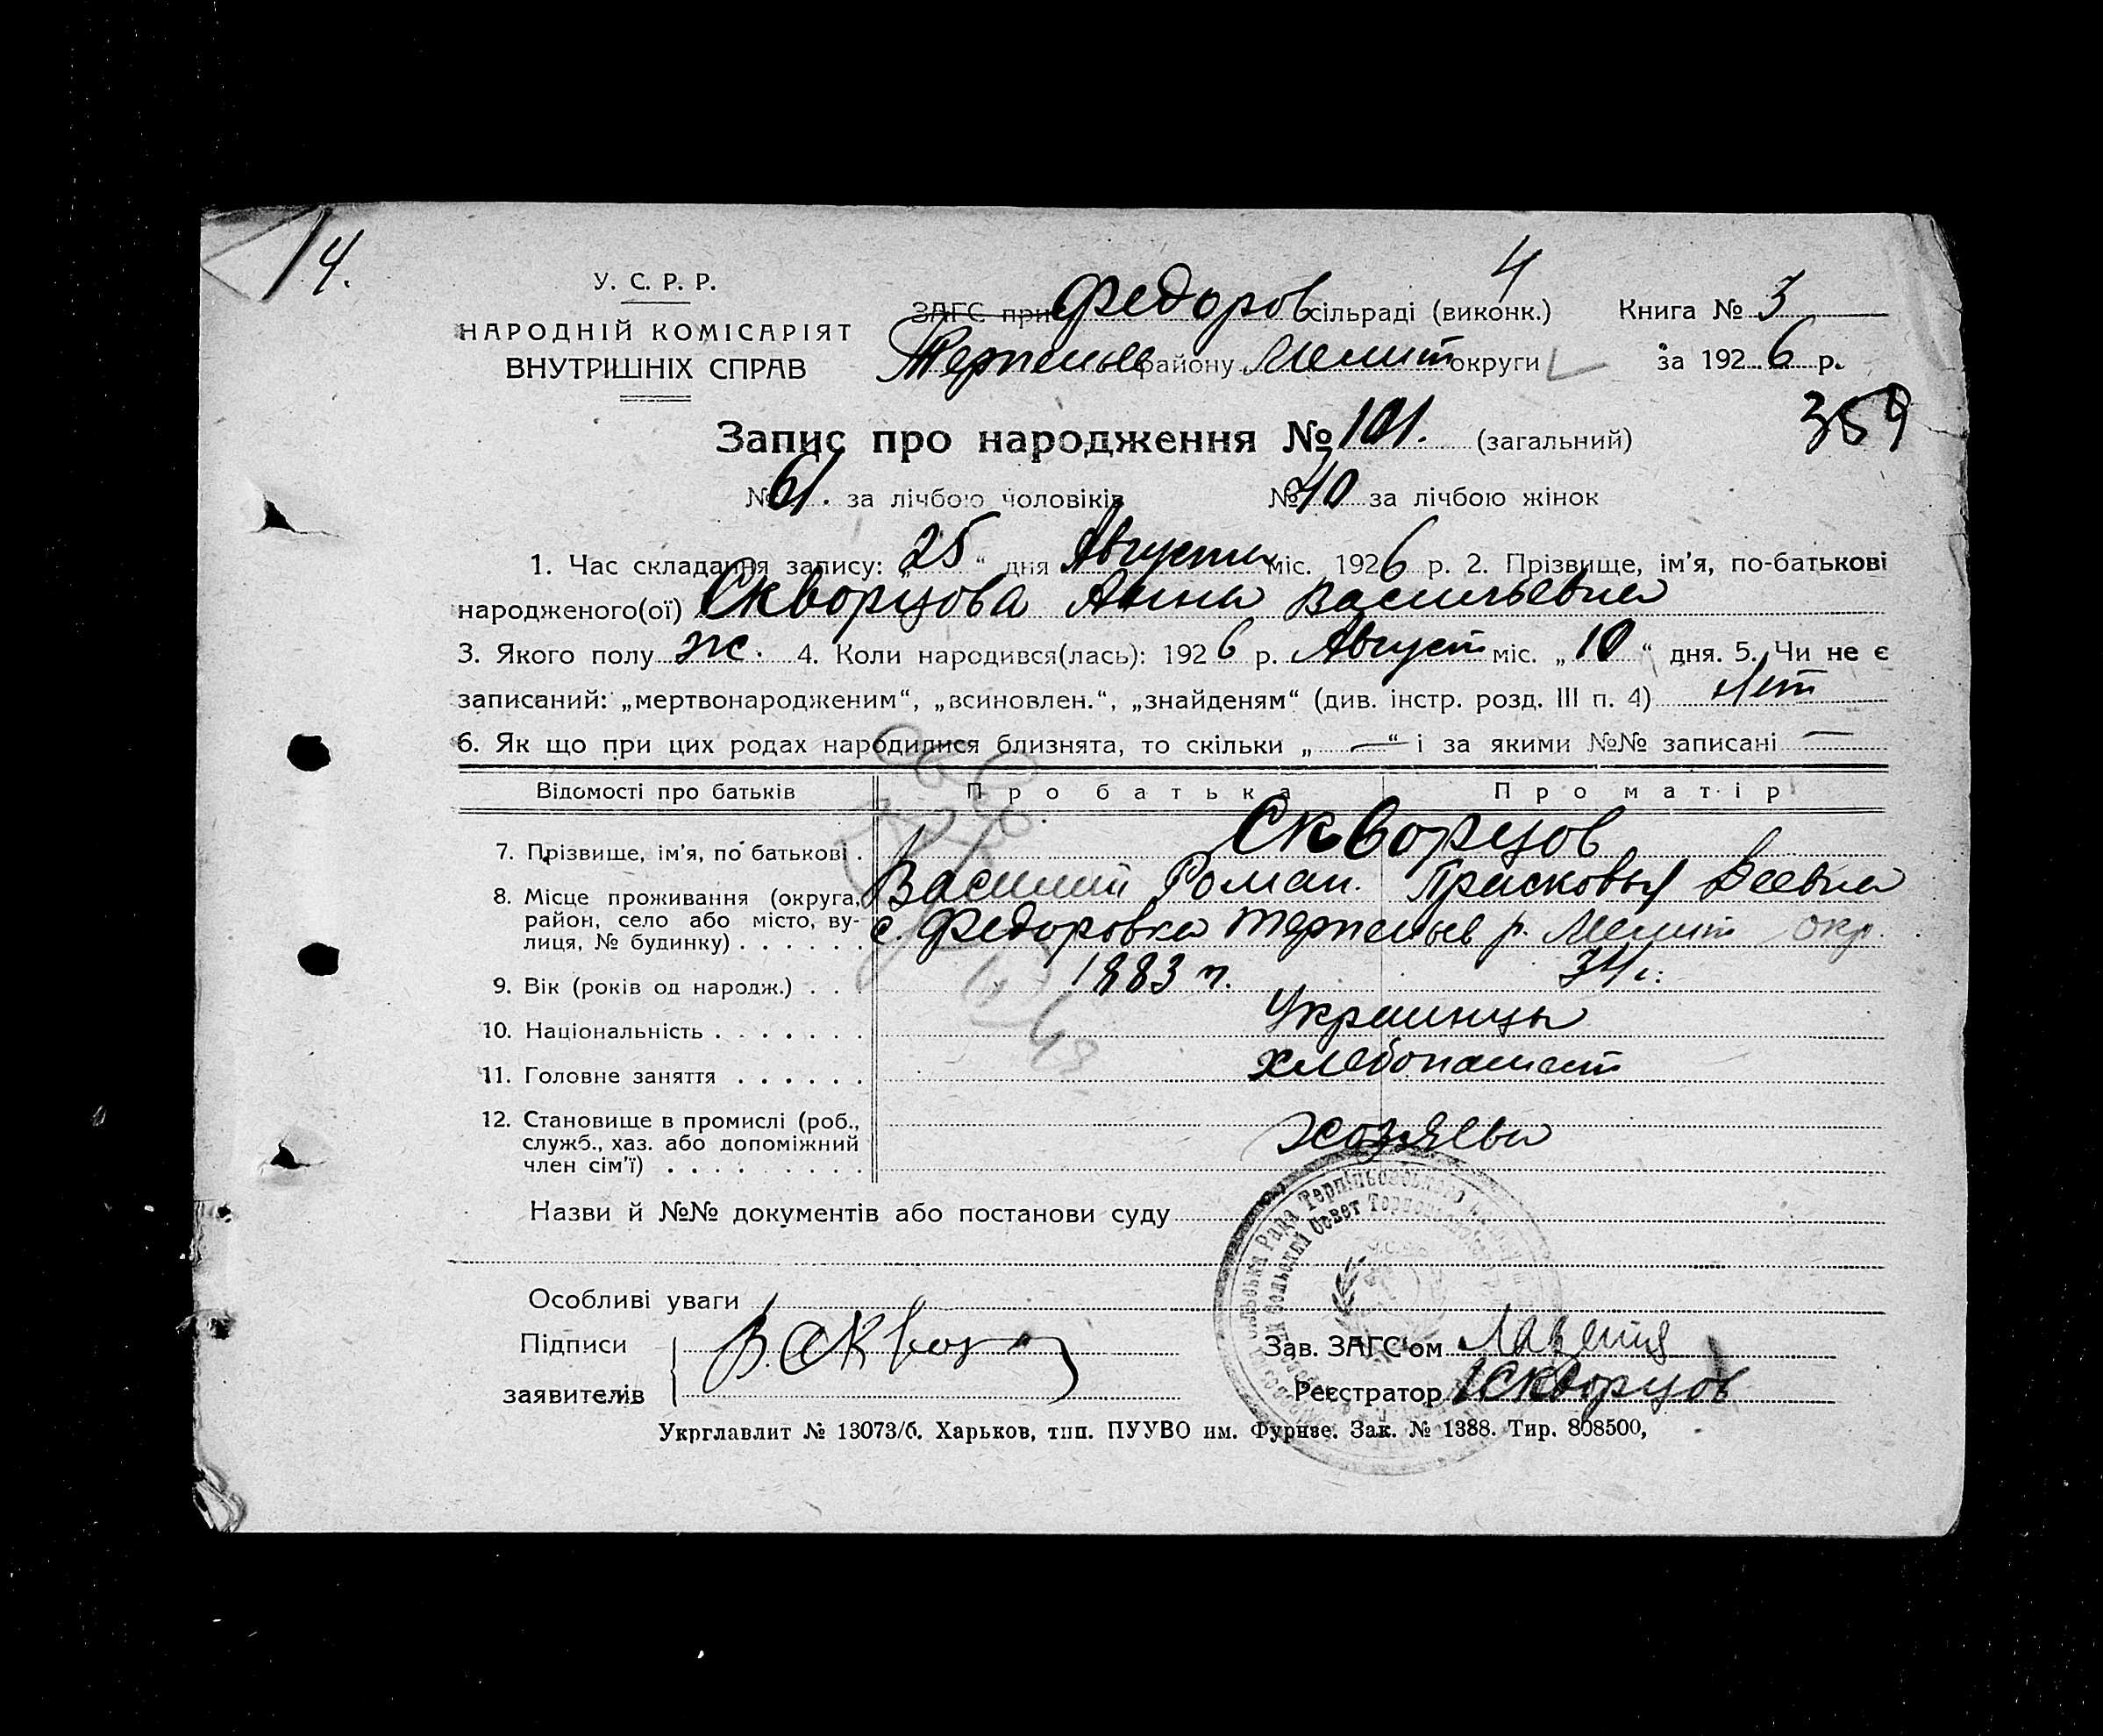 14.
4
У. С. Р. Р.
НАРОДНІЙ КОМІСАРІЯТ
ВНУТРІШНІХ СПРАВ
ЗАГС при Федоров сільраді (виконк.) Книга № 3
Терпеньев району Мелит округи за 1926 р.
359
Запис про народження № 101. (загальний)
№ 61. за лічбою чоловіків № 40 за лічбою жінок
1. Час складання запису: „25“ дня Августа міс. 1926 р. 2. Прізвище, ім'я, по-батькові
народженого(ої) Скворцова Анна Васильевна
3. Якого полу ж. 4. Коли народився(лась): 1926 р. Август міс. „10“ дня. 5. Чи не є
записаний: „мертвонародженим“, „всиновлен.“, „знайденям“ (див. інстр. розд. III п. 4) Нет
6. Як що при цих родах народилися близнята, то скільки „—“ і за якими №№ записані —
Відомості про батьків Про батька Про матір
7. Прізвище, ім'я, по батькові . Скворцов
Василий Роман. Прасковья
8. Місце проживання (округа, район, село або місто, вулиця, № будинку) . . . . . . с Федоровка Терпеньев р. Мелит окр.
9. Вік (років од народж.) . . . 1883 г. 34 г.
10. Національність . . . . . . . Украинцы
11. Головне заняття . . . . . . хлебопашест
12. Становище в промислі (роб., служб., хаз. або допоміжний член сім'ї) . . . . . . . . . хозяева
Назви й №№ документів або постанови суду
Особливі уваги
Підписи
заявителів
В. Сквор
Зав. ЗАГС'ом
Реєстратор Скворцов
Укрглавлит № 13073/б. Харьков, тип. ПУУВО им. Фурнзе. Зак. № 1388. Тир. 808500,